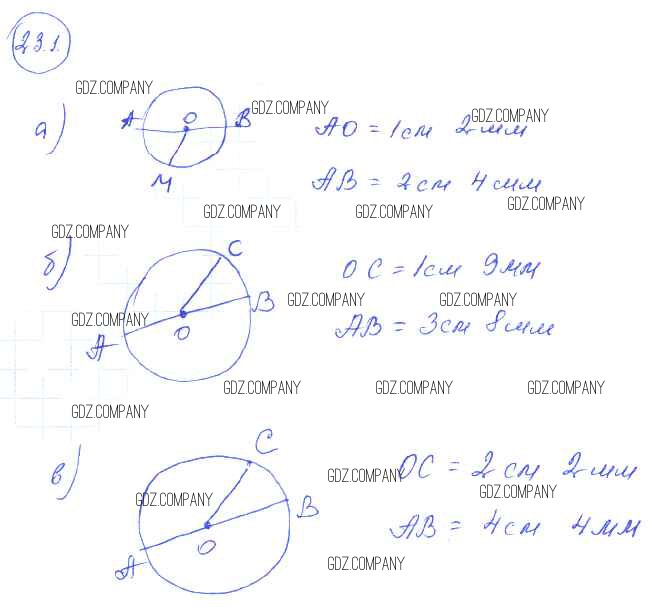 23.1.
GDZ.COMPANY
а) А О В GDZ.COMPANY АО = 1см 2мм GDZ.COMPANY
М АВ = 2см 4мм
GDZ.COMPANY GDZ.COMPANY GDZ.COMPANY
GDZ.COMPANY
б) С ОС = 1см 9мм
В GDZ.COMPANY GDZ.COMPANY
А GDZ.COMPANY О АВ = 3см 8мм
GDZ.COMPANY GDZ.COMPANY GDZ.COMPANY
GDZ.COMPANY
в) С GDZ.COMPANY ОС = 2см 2мм
GDZ.COMPANY В GDZ.COMPANY
А О АВ = 4см 4мм
GDZ.COMPANY